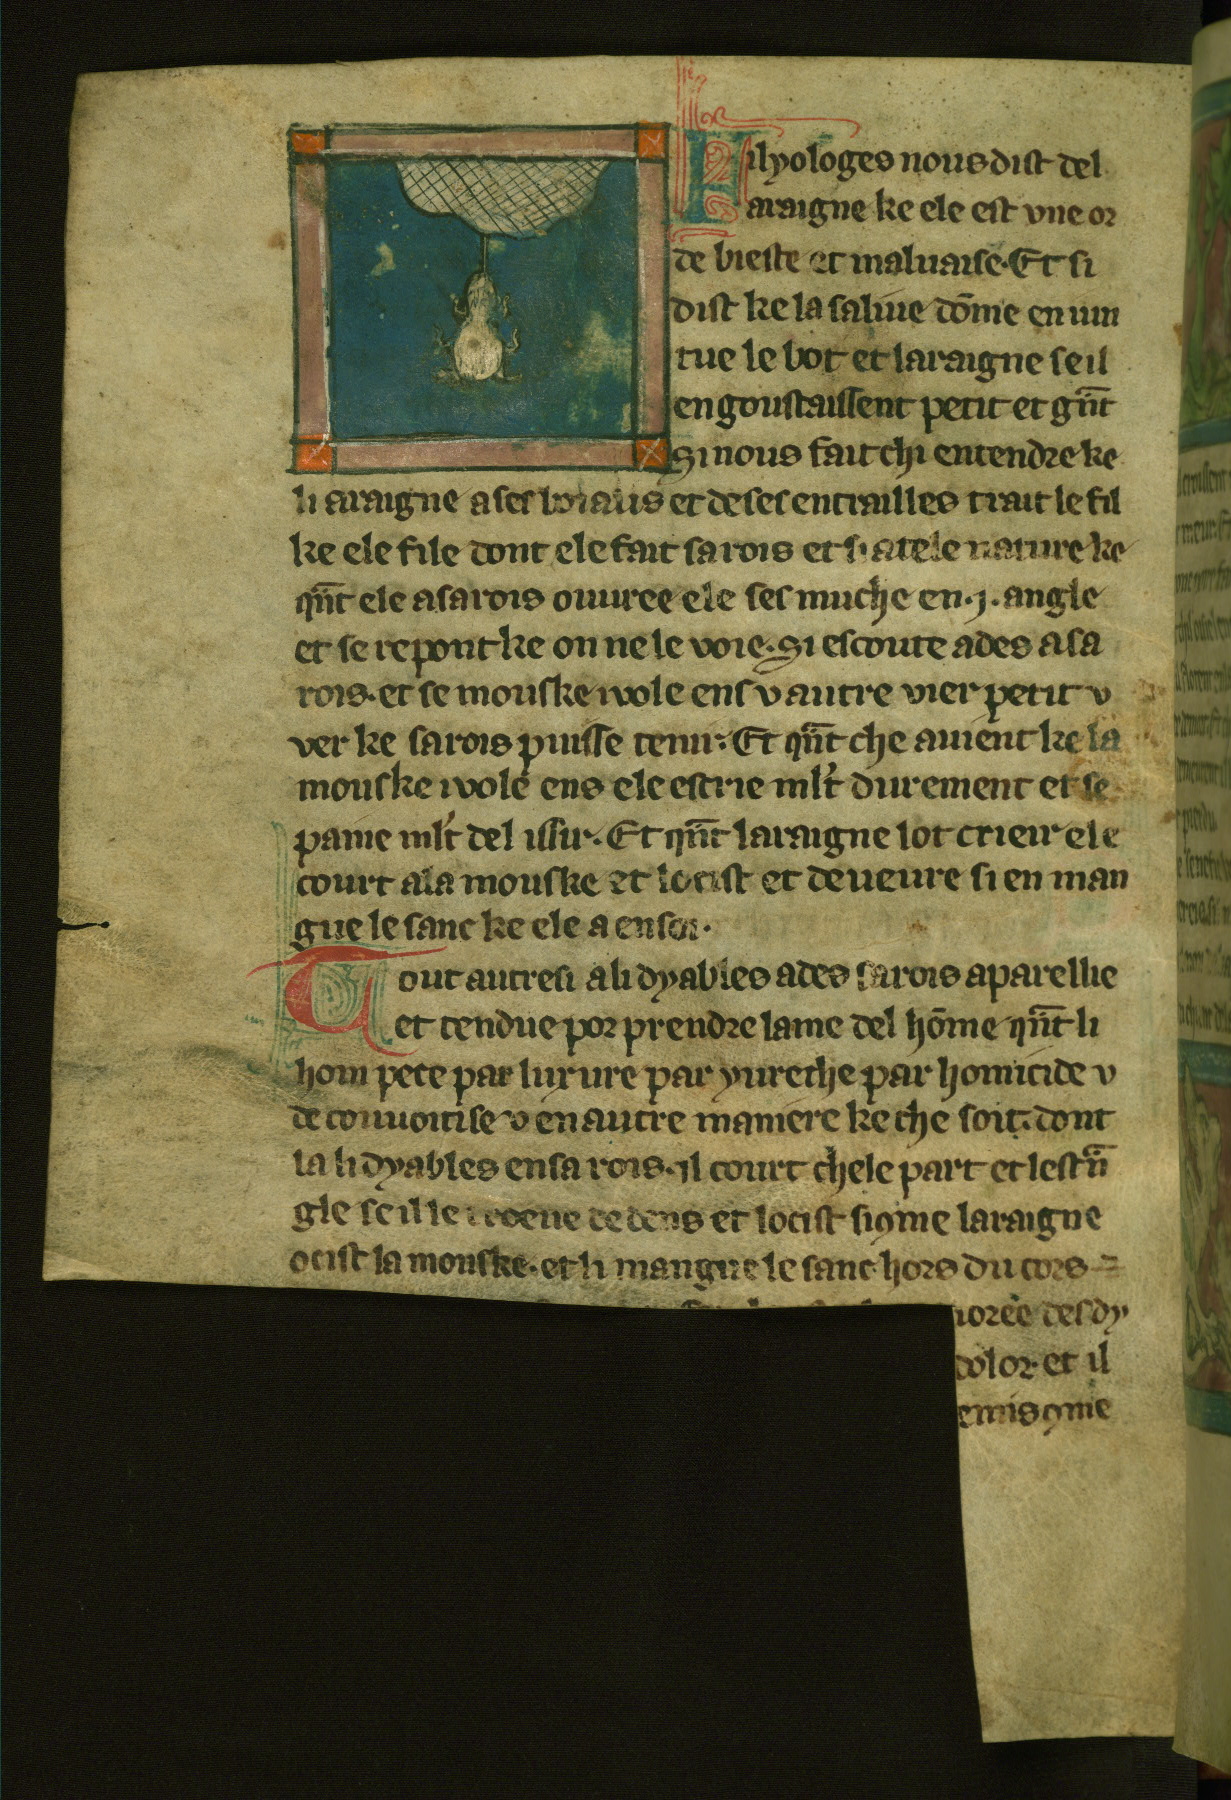 Filyologes nous dist del
araigne ke ele est vne or
de bieste et maluaise. Et si
dist ke la saliue dōme en iun
tue le bot et laraigne se il
en goustaissent petit et gñt
Si nous fait chi entendre ke
li araigne a ses boiaus et de ses entrailles trait le fil
ke ele file dont ele fait sa rois et si a tele nature ke
qñt ele a sa rois ouuree ele ses muche en .j. angle
et se repont ke on ne le voie. Si escoute ades a sa
rois. et se mouske i vole ens v autre vier petit v
ver ke sa rois puisse tenir. Et qñt che auient ke la
mouske i vole ens ele estrie ml't durement et se
paine ml't del issir. Et qñt laraigne lot crier ele
court a la mouske et locist et deueure si en man
gue le sanc ke ele a en soi.
Tout autresi a li dyables ades sa rois aparellie
et tendue por prendre lame del hōme qñt li
hom pece par luxure par yureche par homicide v
de conuoitise v en autre maniere ke che soit. dont
la li dyables en sa rois. il court chele part et lestrā
gle se il le dedens et locist si ꝯme laraigne
ocist la mouske. et li mangue le sanc hors du cors
des dy
dolor et il
emis ꝯme